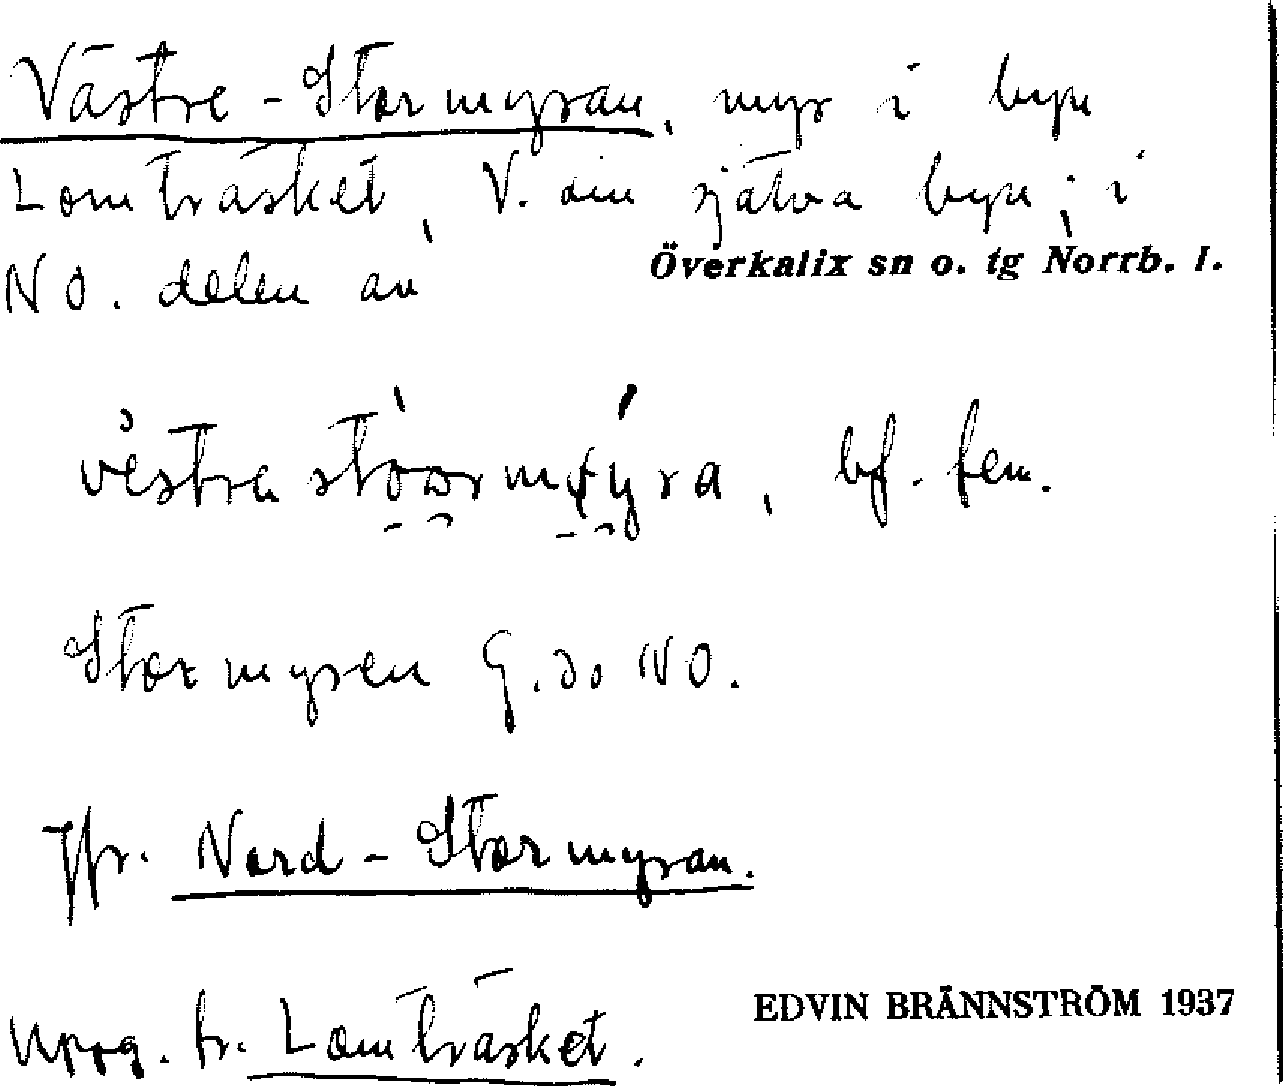 Västre-Stormyran, myr i byn
Lomträsket, V. om själva byn; i
NO. delen av
Överkalix sn o. tg Norrb. l.
bf. fem.
Stormyren G. do NO.
Jfr. Nord-Stormyran.
Uppg. fr. Lomträsket.
EDVIN BRÄNNSTRÖM 1937